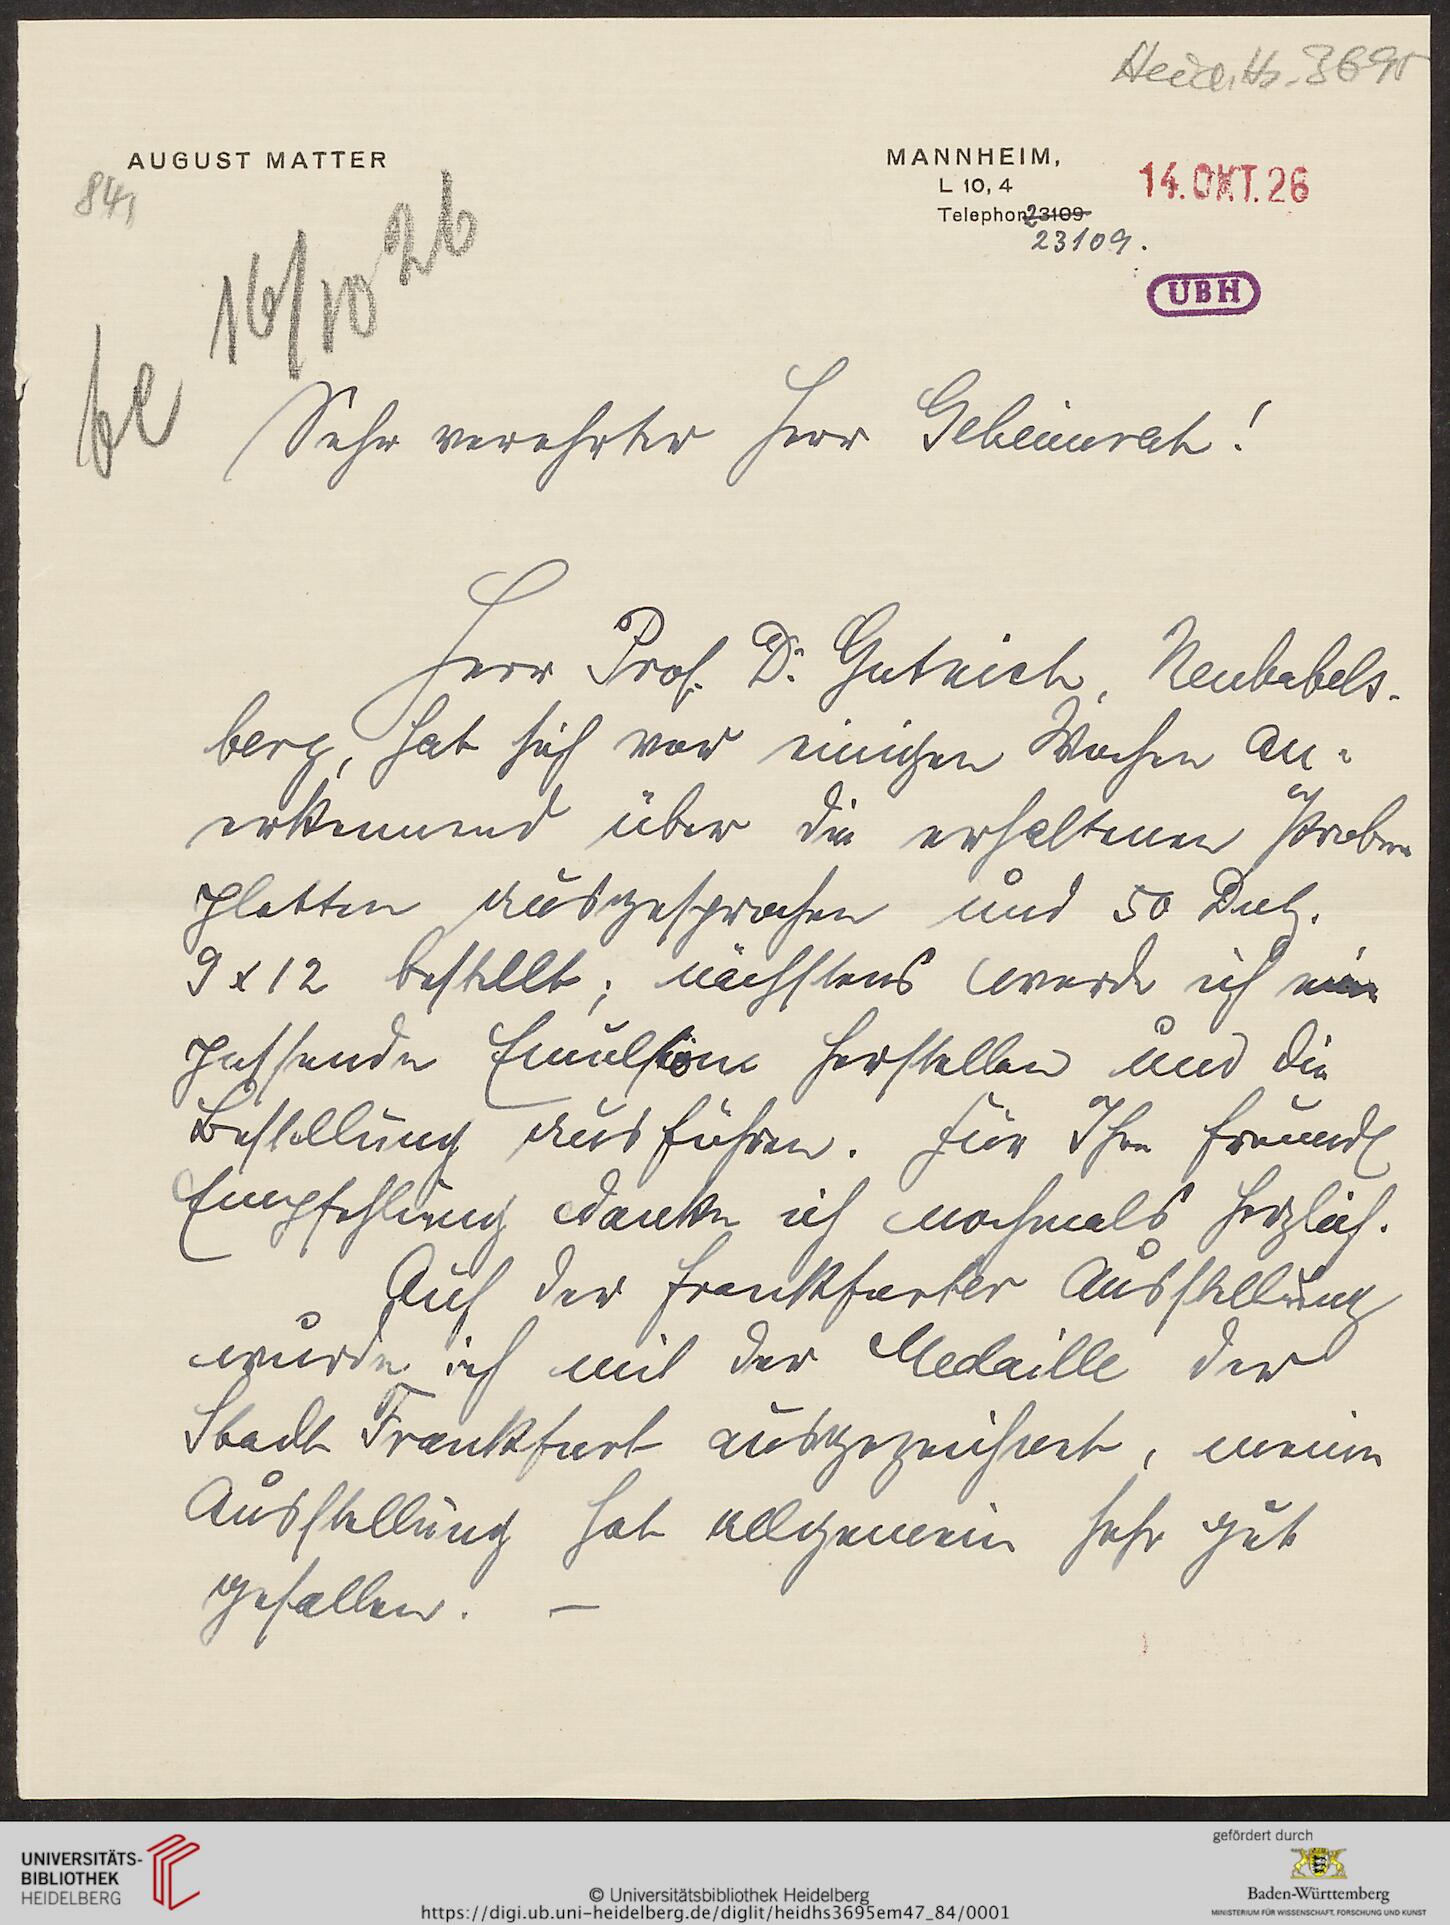 Heid. Hs. 3695
AUGUST MATTER
84,
MANNHEIM,
L 10, 4
Telephon 23109
23109.
14. OKT. 26
UBH
be 16/10 26
Sehr verehrter Herr Geheimrat!
Herr Prof. Dr. Gutnick, Neubabels-
berg, hat sich vor einigen Wochen an-
erkennend über die erhaltenen Proben
platten ausgesprochen und 50 Dutz.
9 x 12 bestellt; nächstens werde ich eine
passende Emulsion herstellen und die
Bestellung ausführen. Für Ihre freundl
Empfehlung danke ich nochmals herzlich.
Auf der Frankfurter Ausstellung
wurde ich mit der Medaille der
Stadt Frankfurt ausgezeichnet, meine
Ausstellung hat allgemein sehr gut
gefallen. —
UNIVERSITÄTS-
BIBLIOTHEK
HEIDELBERG
© Universitätsbibliothek Heidelberg
https://digi.ub.uni-heidelberg.de/diglit/heidhs3695em47_84/0001
gefördert durch
Baden-Württemberg
MINISTERIUM FÜR WISSENSCHAFT, FORSCHUNG UND KUNST